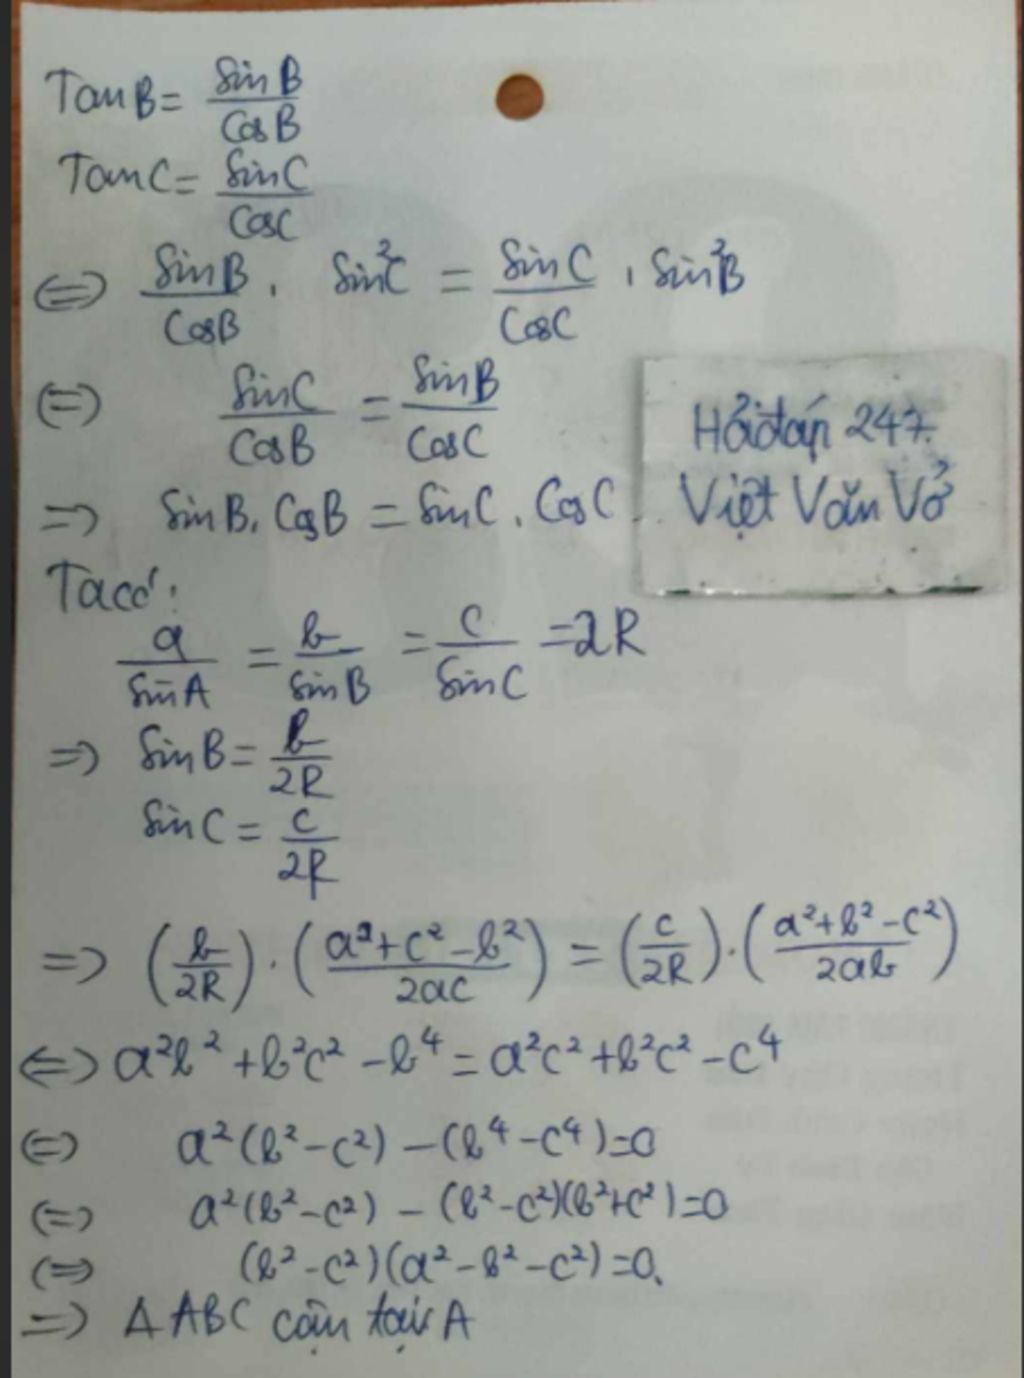 TanB = SinB / CosB
TanC = SinC / CosC
⇔ SinB / CosB . Sin²C = SinC / CosC . Sin²B
⇔ SinC / CosB = SinB / CosC
⇒ SinB. CosB = SinC. CosC
Hỏi đáp 247.
Việt Văn Vở
Ta có:
a / SinA = b / SinB = c / SinC = 2R
⇒ SinB = b / 2R
SinC = c / 2R
⇒ (b / 2R) . (a² + c² - b² / 2ac) = (c / 2R) . (a² + b² - c² / 2ab)
⇔ a²b² + b²c² - b⁴ = a²c² + b²c² - c⁴
⇔ a²(b² - c²) - (b⁴ - c⁴) = 0
⇔ a²(b² - c²) - (b² - c²)(b² + c²) = 0
⇔ (b² - c²)(a² - b² - c²) = 0.
⇒ Δ ABC cân tại A